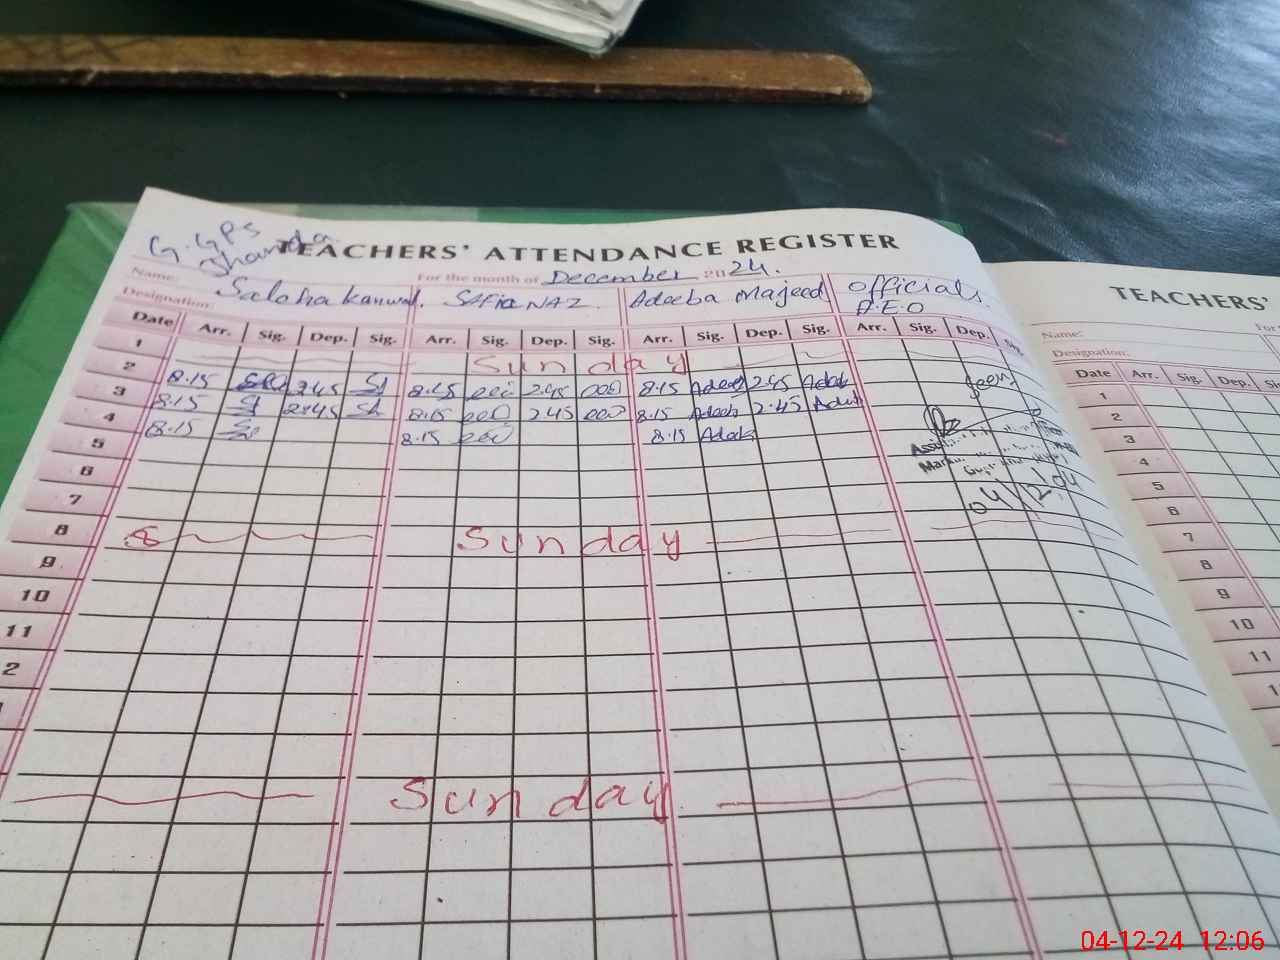 G.GPS
TEACHERS' ATTENDANCE REGISTER
Name: For the month of December 2024.
Designation: Saloha Kanwal. SAfia NAZ. Adeeba Majeed officials.
A.E.O
Date Arr. Sig. Dep. Sig. Arr. Sig. Dep. Sig. Arr. Sig. Dep. Sig. Arr. Sig. Dep. Sig.
1 Sunday
2 8.15 2.45 8.15 2.45 8.15 Adeeb 2.45 Adeeb
3 8.15 2.45 8.15 2.45 8.15 Adeeb 2.45 Adeeb
4 8.15 8.15 8.15 Adeeb
5
6
7 04/12/24
8 Sunday
9
10
11
2
1
Sunday
TEACHERS'
Name: For
Designation:
Date Arr. Sig. Dep. Sig.
1
2
3
4
5
6
7
8
9
10
11
1
04-12-24 12:06